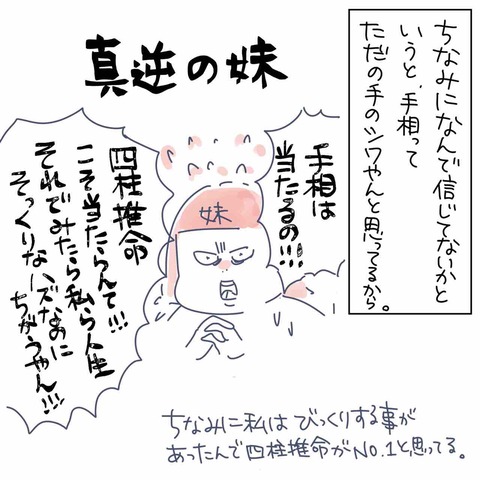 ちなみになんで信じてないかと
いうと、手相って
ただの手のシワやんと思ってるから。
真逆の妹
手相は
当たるの!!!
妹
四柱推命
こそ当たらんて!!!
それでみたら私ら人生
そっくりなハズなのに
ちがうやん!!!
ちなみに私はびっくりする事が
あったんで四柱推命がNO.1と思ってる。